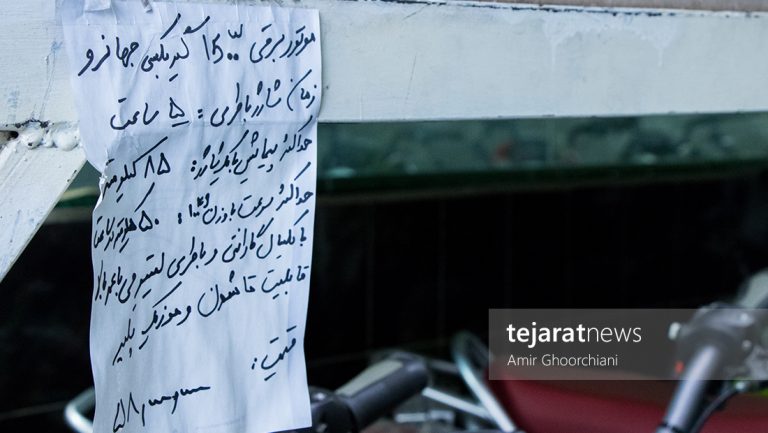 موتور برقی ۱۵۰۰ گیربکسی جهانرو
زمان شارژ باطری : ۵ ساعت
حداکثر پیمایش با یکبار شارژ: ۸۵ کیلومتر
حداکثر سرعت با وزن : ۵۰ کیلومتر ساعت
با یکسال گارانتی و باطری لیتیومی با عمر بالا
قابلیت تاشدن و موزیک پلیر
قیمت :
tejaratnews
Amir Ghoorchiani